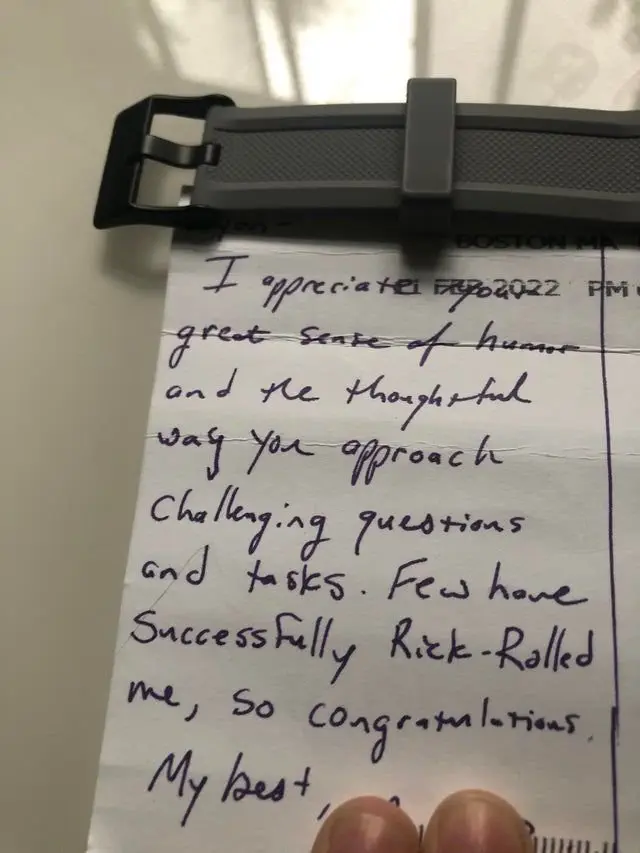 BOSTON MA
I appreciate your
21 FEB 2022 PM
great sense of humor
and the thoughtful
way you approach
challenging questions
and tasks. Few have
Successfully Rick-Rolled
me, so congratulations.
My best,